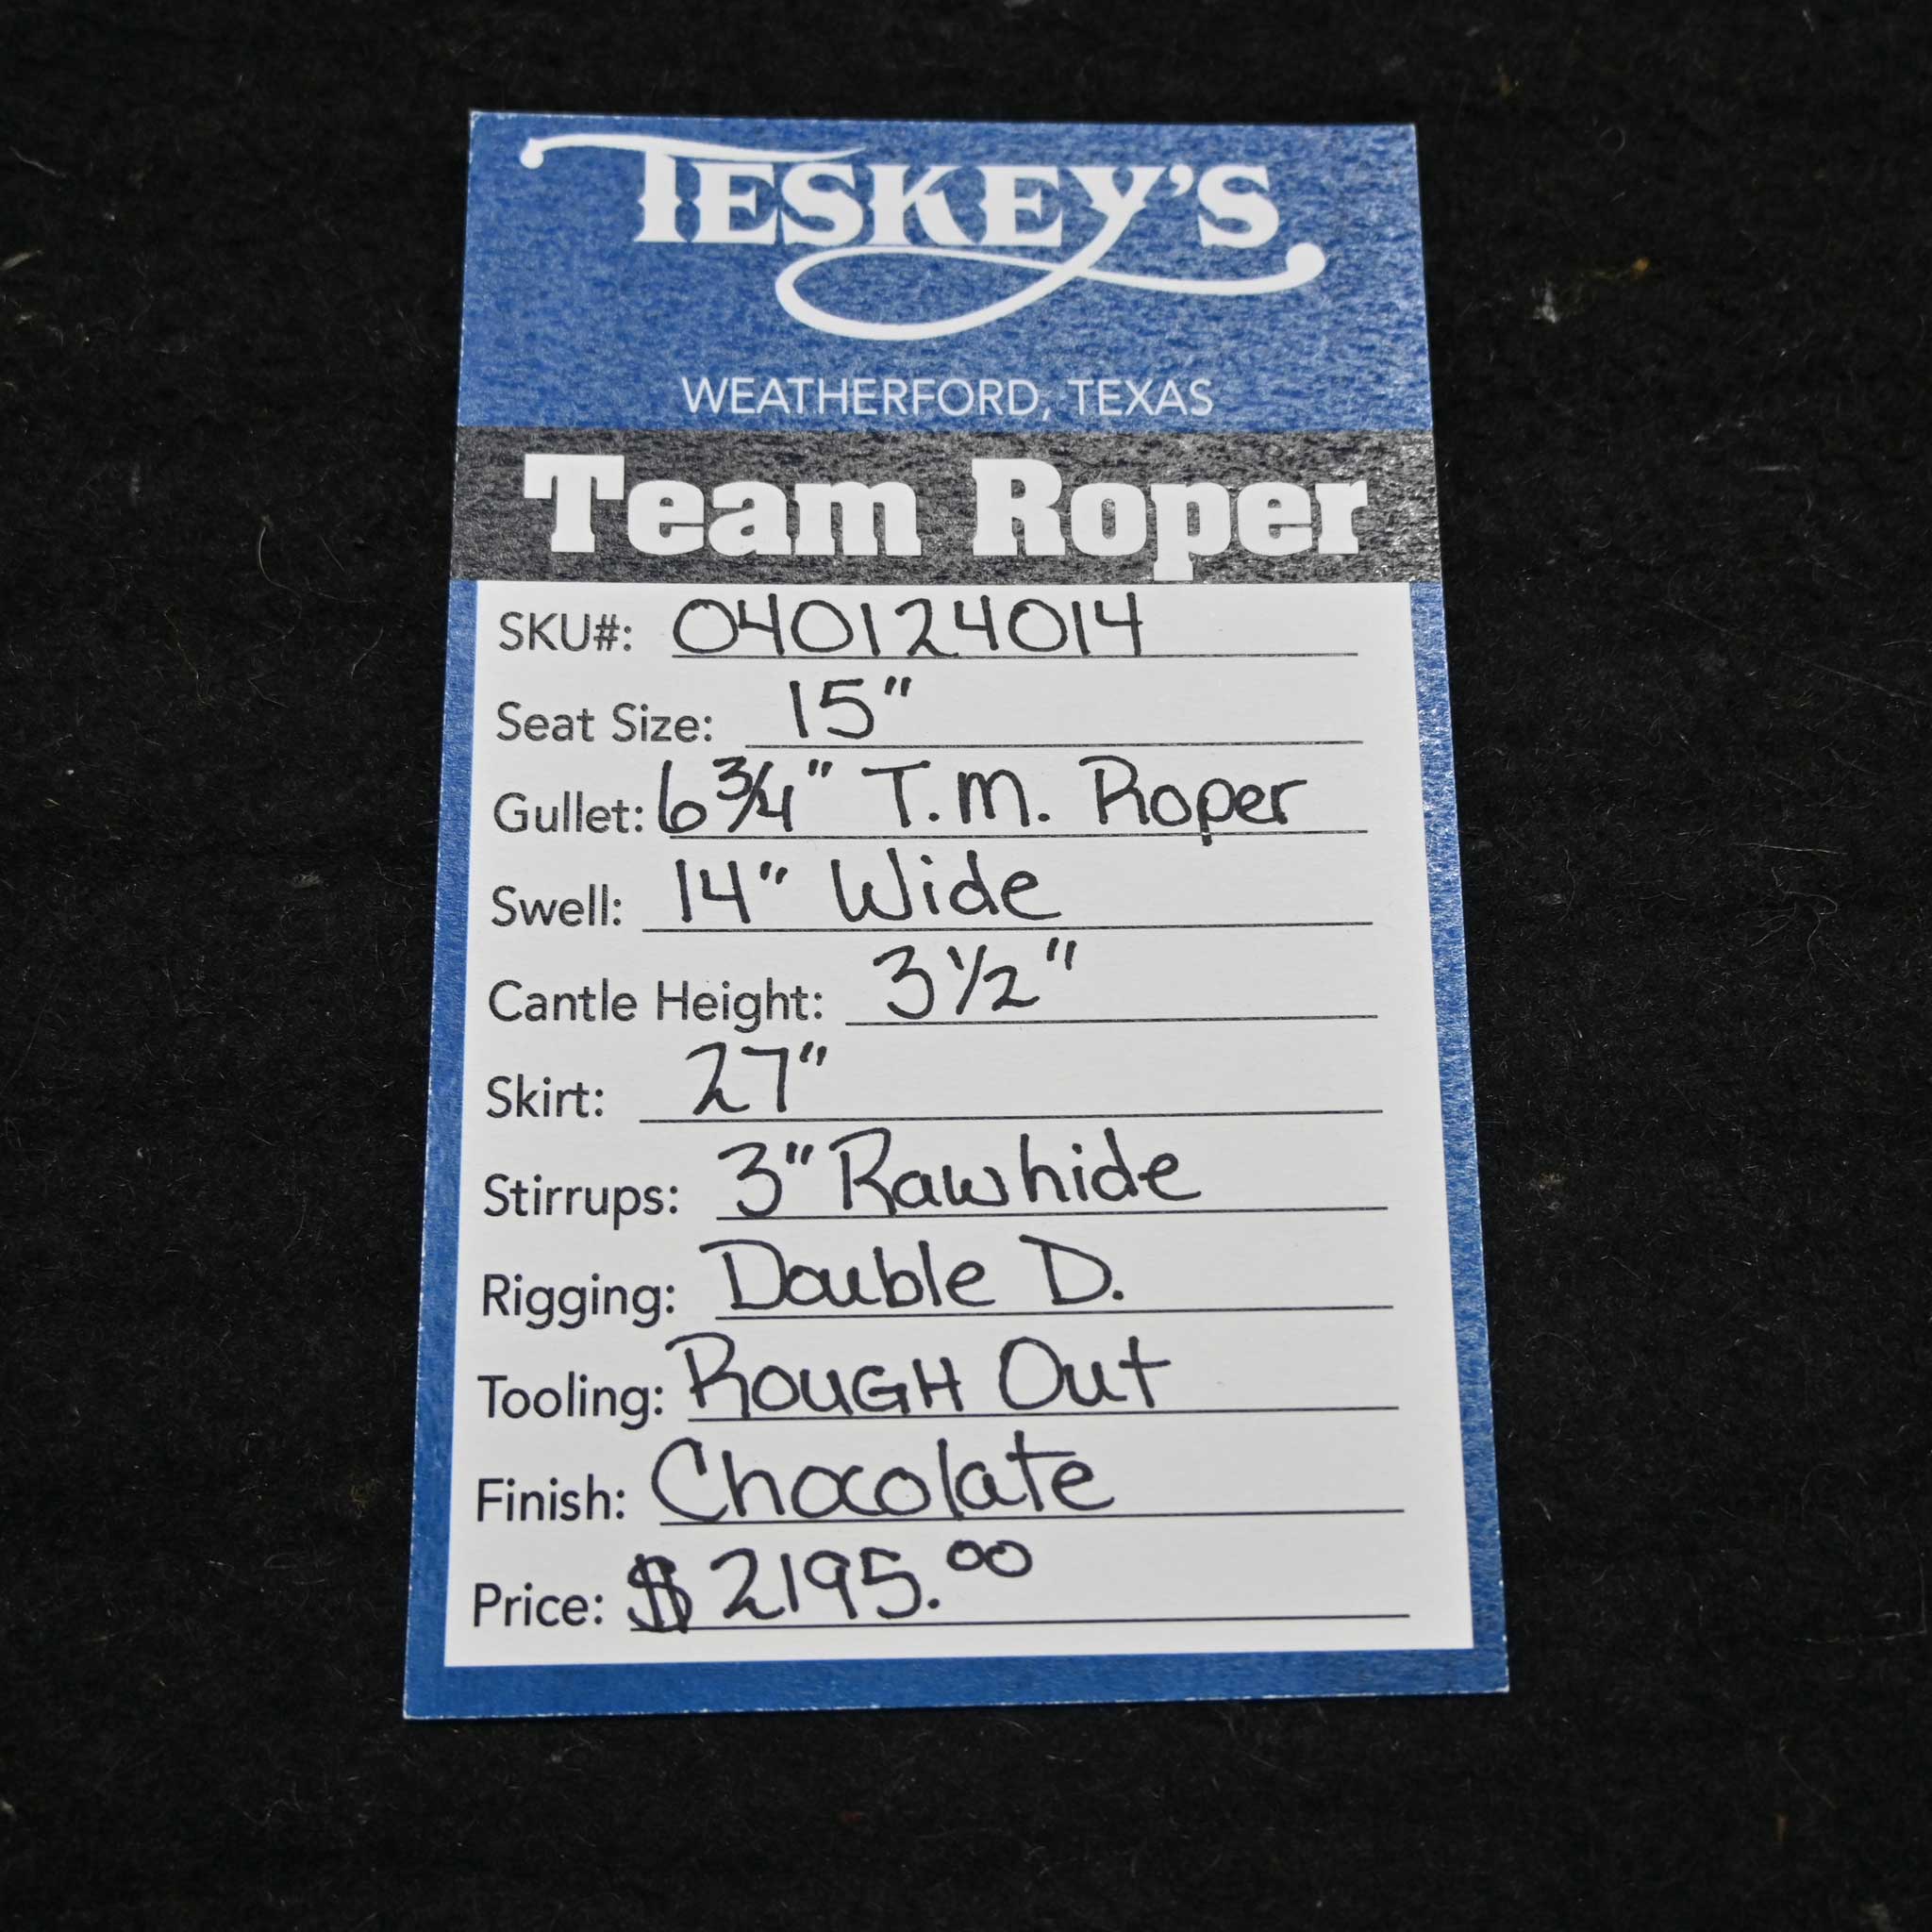 TESKEY'S
WEATHERFORD, TEXAS
Team Roper
SKU#: 040124014
Seat Size: 15"
Gullet: 6 3/4" T.M. Roper
Swell: 14" Wide
Cantle Height: 3 1/2"
Skirt: 27"
Stirrups: 3" Rawhide
Rigging: Double D.
Tooling: ROUGH Out
Finish: Chocolate
Price: $2195.00